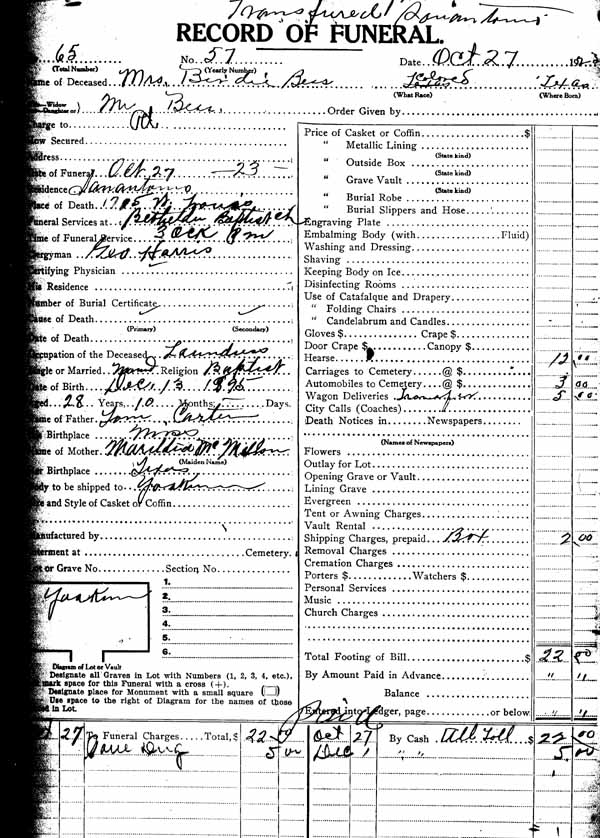 Transfured Sanantonio
RECORD OF FUNERAL.
65 No. 57 Date Oct 27
(Total Number) (Yearly Number)
ame of Deceased Mrs. Birdie Bess Colored Texas
(What Race) (Where Born)
Widow
Daughter or) Mr Bess Order Given by
harge to Pd
ow Secured
Address
ate of Funeral Oct 27 — 23 —
esidence Sanantonio
lace of Death 1705 N
uneral Services at Baptist Ch
ime of Funeral Service 3 ock P m
lergyman Geo Harris
ertifying Physician
is Residence
umber of Burial Certificate
ause of Death
(Primary) (Secondary)
ate of Death
ccupation of the Deceased Laundress
ingle or Married Religion Baptist
ate of Birth Dec, 13 1895
ged 28 Years 10 Months Days.
ame of Father Tom Carter
Birthplace
ame of Mother Mc Millon
(Maiden Name)
er Birthplace Texas
ody to be shipped to Yoakum
ize and Style of Casket or Coffin
anufactured by
terment at Cemetery.
ot or Grave No. Section No.
Yoakum
1.
2.
3.
4.
5.
6.
Diagram of Lot or Vault
Designate all Graves in Lot with Numbers (1, 2, 3, 4, etc.).
mark space for this Funeral with a cross (+).
Designate place for Monument with a small square (□)
Use space to the right of Diagram for the names of those
d in Lot.
Price of Casket or Coffin $
" Metallic Lining
(State kind)
" Outside Box
(State kind)
" Grave Vault
(State kind)
" Burial Robe
" Burial Slippers and Hose
Engraving Plate
Embalming Body (with Fluid)
Washing and Dressing
Shaving
Keeping Body on Ice
Disinfecting Rooms
Use of Catafalque and Drapery
" Folding Chairs
" Candelabrum and Candles
Gloves $ Crape $
Door Crape $ Canopy $
Hearse 12 00
Carriages to Cemetery @ $
Automobiles to Cemetery @ $ 3 00
Wagon Deliveries Transfer 5 00
City Calls (Coaches)
Death Notices in Newspapers
(Names of Newspapers)
Flowers
Outlay for Lot
Opening Grave or Vault
Lining Grave
Evergreen
Tent or Awning Charges
Vault Rental
Shipping Charges, prepaid Box 2 00
Removal Charges
Cremation Charges
Porters $ Watchers $
Personal Services
Music
Church Charges
Total Footing of Bill $ 22 00
By Amount Paid in Advance " "
Balance
Entered into Ledger, page or below " "
27 To Funeral Charges Total, $ 22 00 Oct 27 By Cash $ 22 00
5 00 Dec 1 " " 5 00